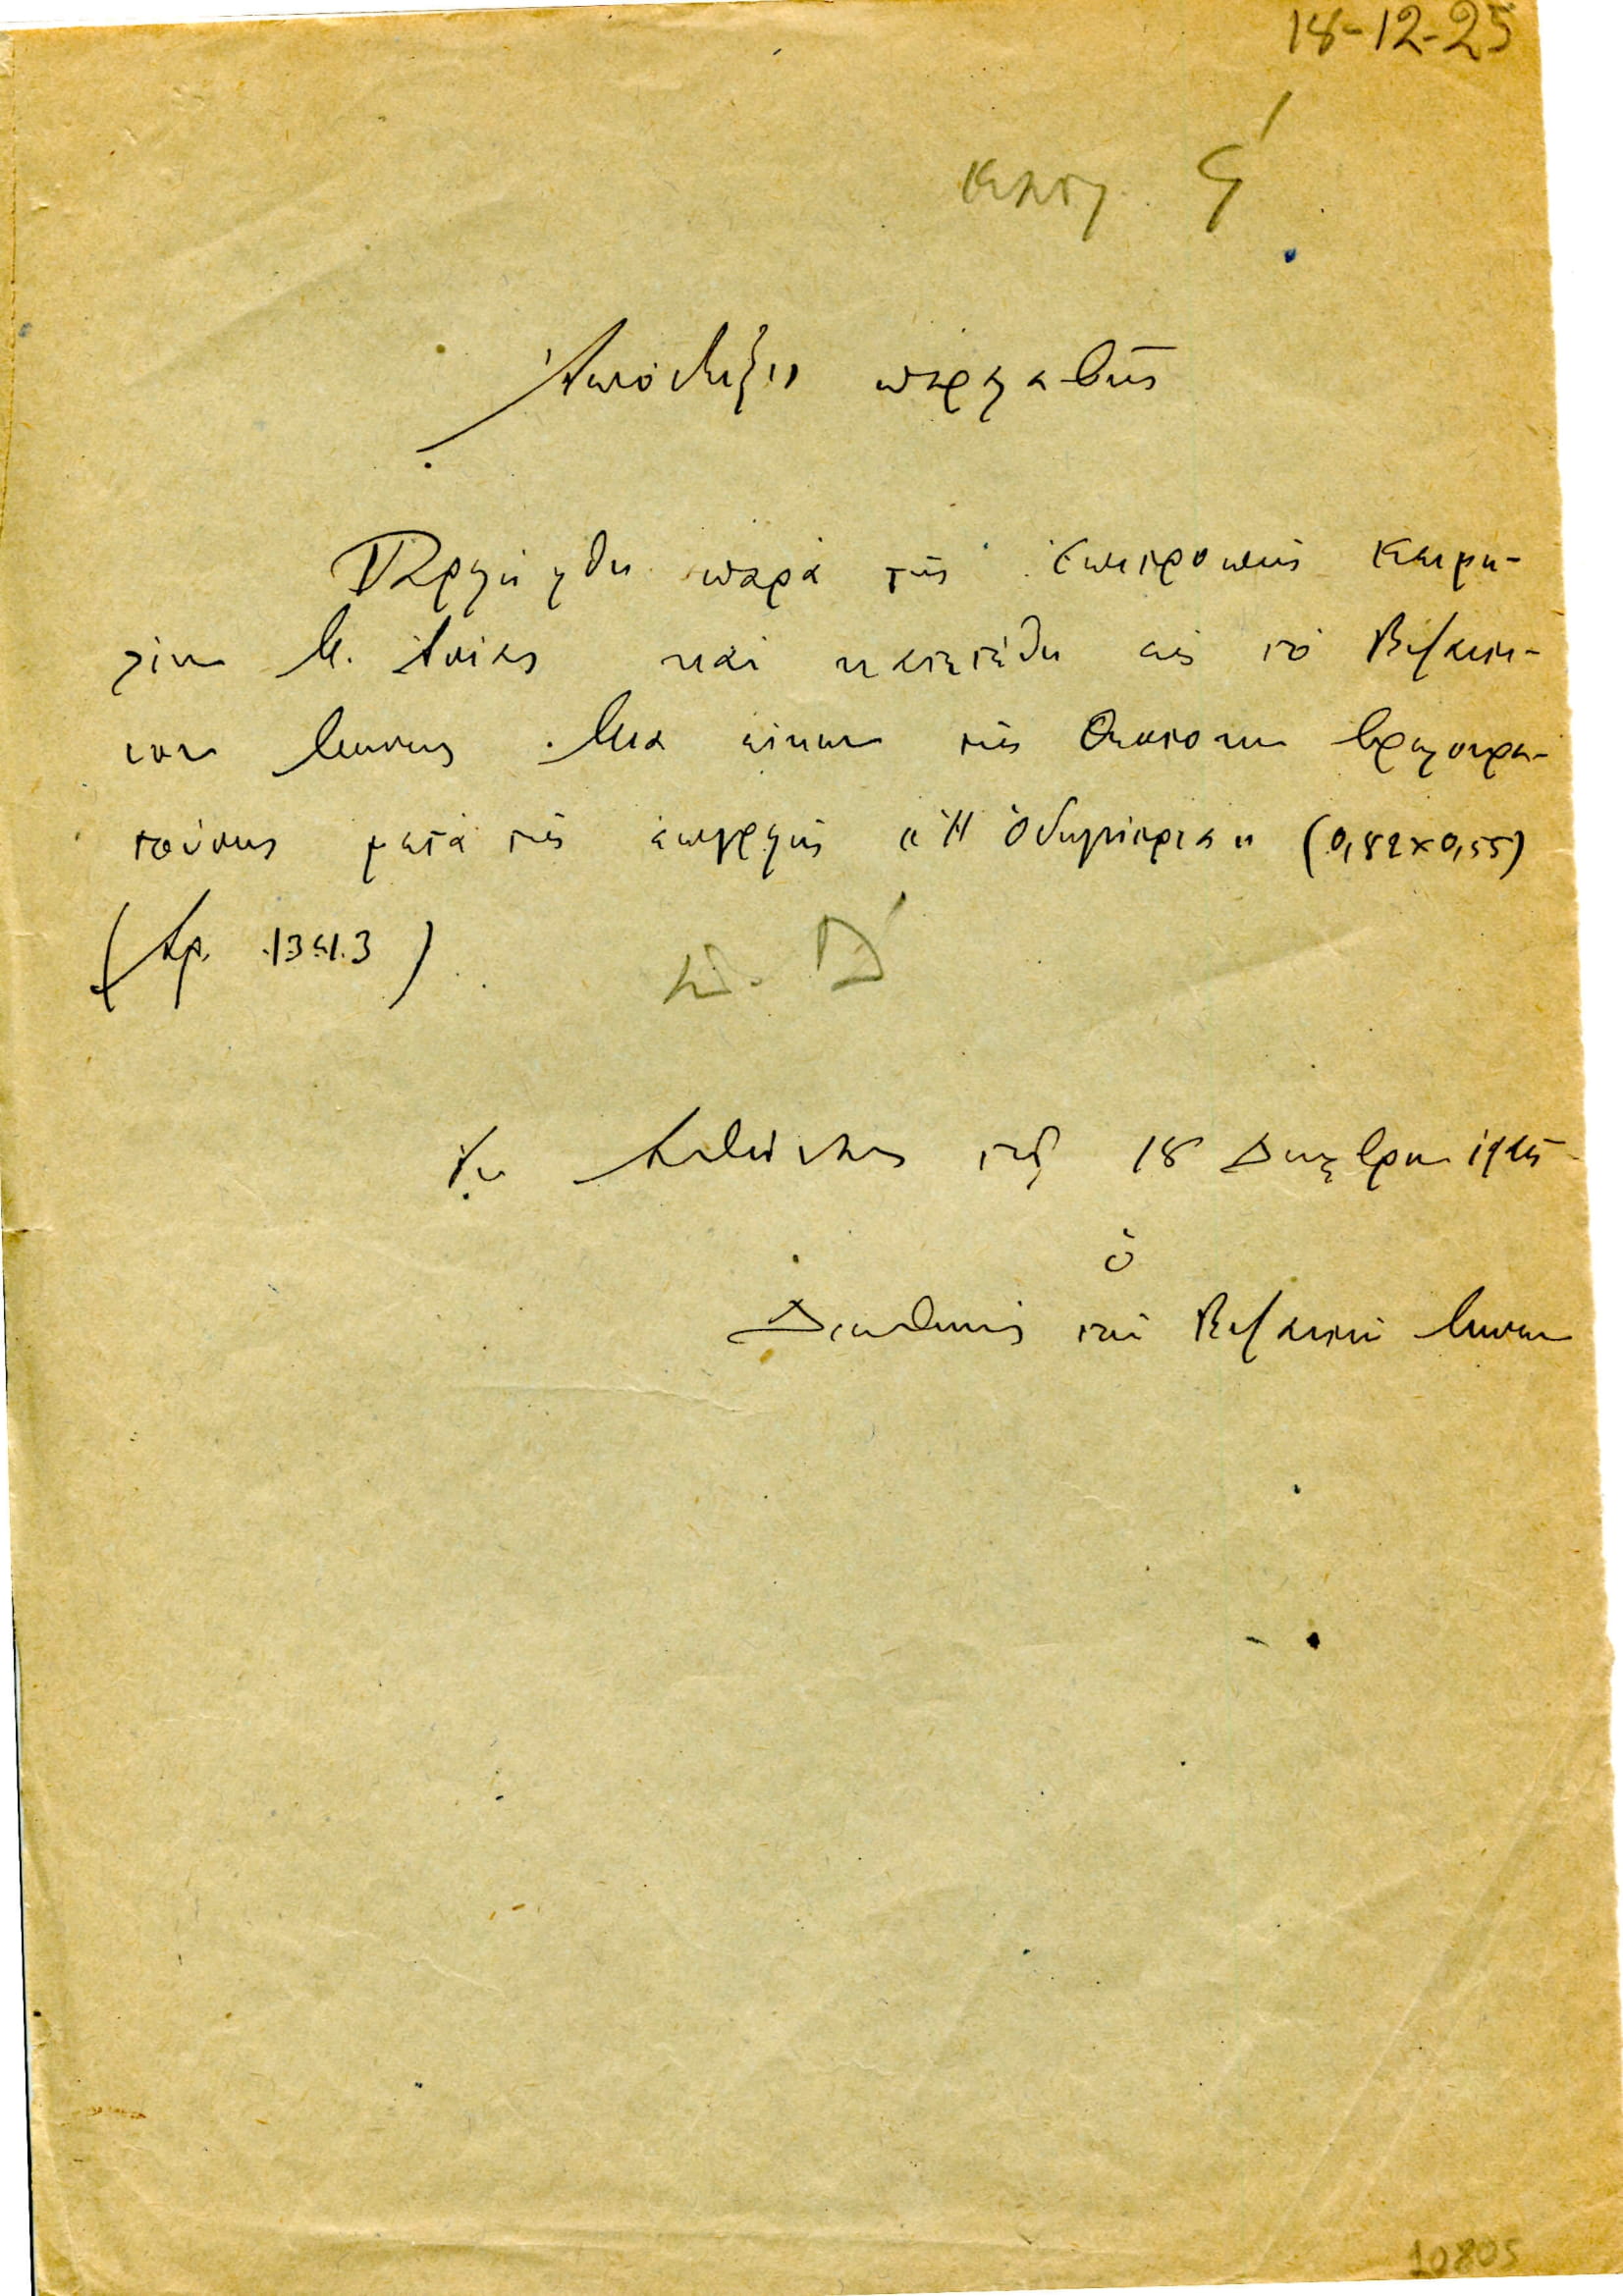 18-12-25
Κατηγ. Ϛ΄
Ἀπόδειξις παραλαβῆς
Παρελήφθη παρὰ τῆς Ἐπιτροπῆς Κειμη-
λίων Μ. Ἀσίας καὶ κατετέθη εἰς τὸ Βυζαντι-
νὸν Μουσεῖον Μία εἰκὼν τῆς Θεοτόκου βρεφοκρα-
τούσης μετὰ τῆς ἐπιγραφῆς "Ἡ Ὁδηγήτρια" (0,82×0,55)
(Ἀρ. 1341.3)
Ἐν Ἀθήναις τῇ 18 Δεκεμβρίου 1925
ὁ
Διευθυντὴς τοῦ Βυζαντινοῦ Μουσείου
10805